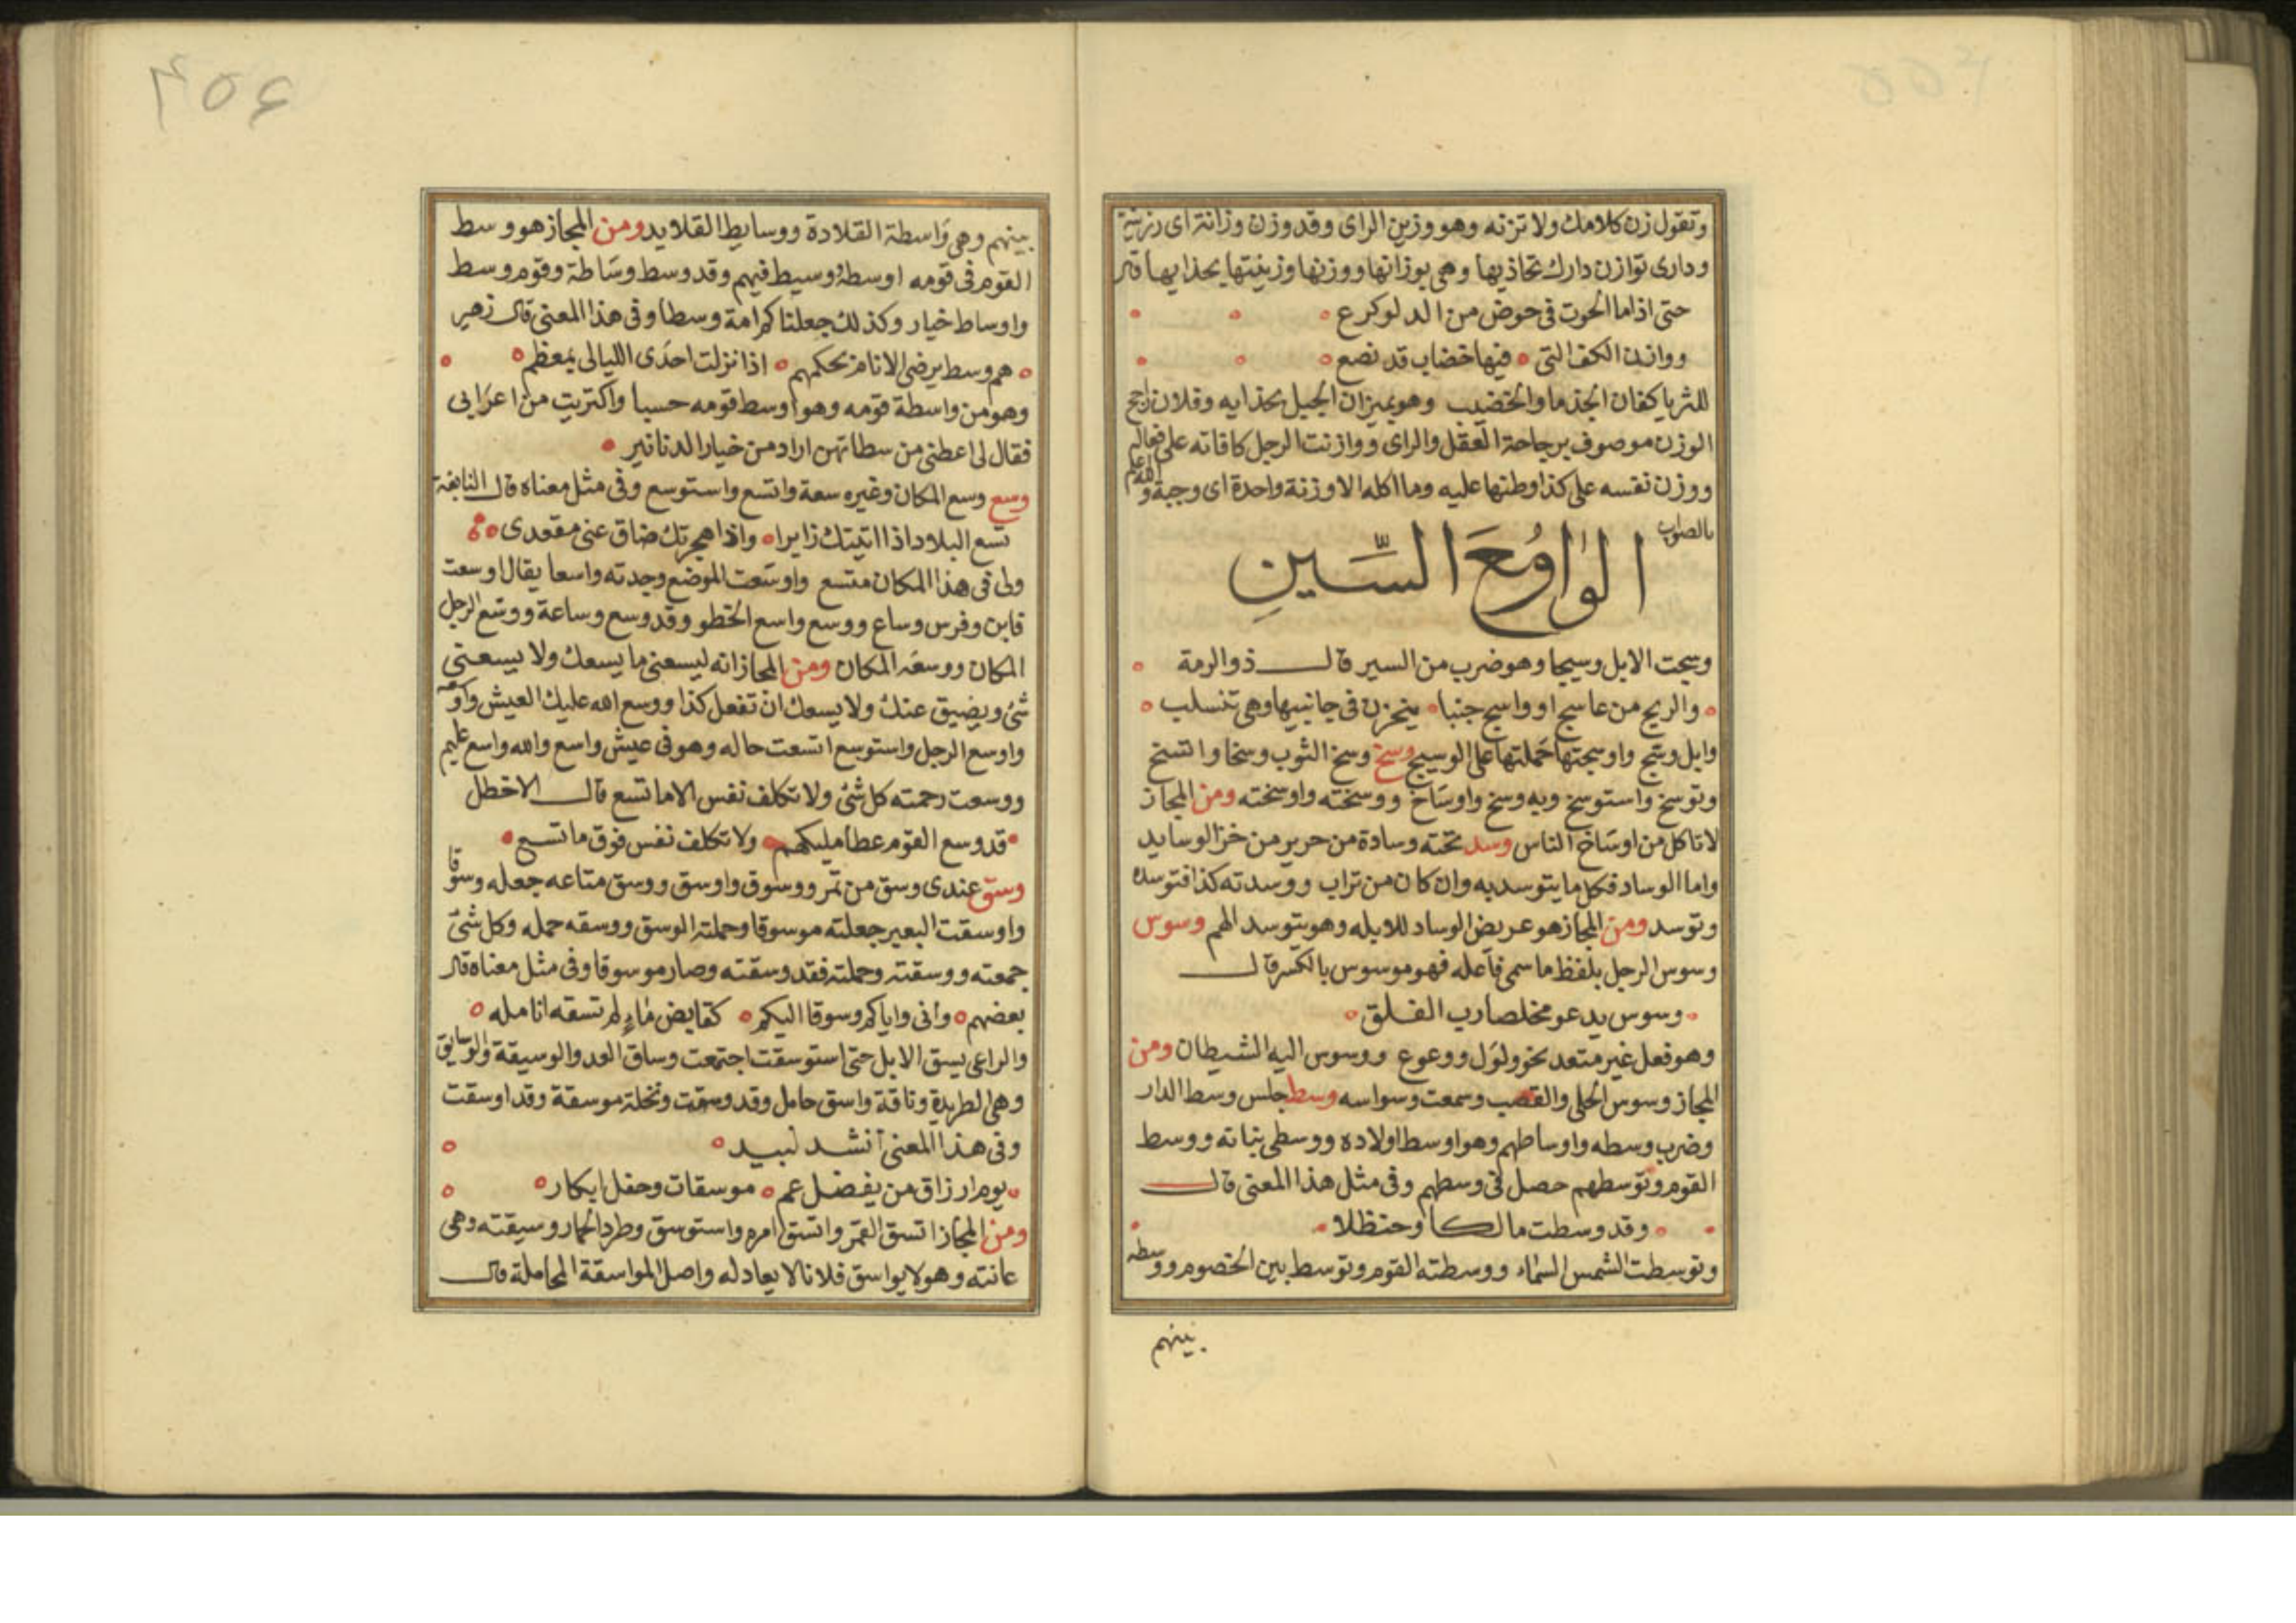 وتقول زن كلامك ولا تزنه وهو وزين الراى وقد وزن وزانة اى رزينة
ودارى توازن دارك تحاذيها وهى بوزانها ووزنها وزينتها بحذايها قال
حتى اذا ما الحوت فى حوض من الدلو كرع
ووازن الكف التى فيها خضاب قد نصع
للثريا كفان الجذما والخضيب وهو بميزان الجبل بحذايه وفلان راجح
الوزن موصوف برجاحة العقل والراى ووازنت الرجل كافاته على فعاله
ووزن نفسه على كذا وطنها عليه وما اكله الا وزنة واحدة اى وجبة و الله اعلم
بالصواب
الواو مع السين
وسجت الابل وسيجا وهو ضرب من السير قال ذو الرمة
والريح من عاسج او واسج جنبا ينحزن فى جانبيها وهى تنسلب
وابل وسج واوسجتها حملتها على الوسيج وسخ وسخ الثوب وسخا واتسخ
وتوسخ واستوسخ وبه وسخ واوساخ ووسخته واوسخته ومن المجاز
لا تاكل من اوساخ الناس وسد تحته وسادة من حرير من خز الوسايد
واما الوساد فكل ما يتوسد به وان كان من تراب ووسدته كذا فتوسده
وتوسد ومن المجاز هو عريض الوساد للابله وهو يتوسد الهم وسوس
وسوس الرجل بلفظ ما سمى فاعله فهو موسوس بالكسر قال
وسوس يدعو مخلصا رب الفلق
وهو فعل غير متعد نحو ولول ووعوع ووسوس اليه الشيطان ومن
المجاز وسوس الحلى والقصب وسمعت وسواسه وسط جلس وسط الدار
وضرب وسطه واوساطهم وهو اوسط اولاده ووسطى بناته ووسط
القوم وتوسطهم حصل فى وسطهم وفى مثل هذا المعنى قال
وقد وسطت مالكا وحنظلا
وتوسطت الشمس السماء ووسطته القوم وتوسط بين الخصوم ووسطه
بينهم
بينهم وهى واسطة القلادة ووسايط القلايد ومن المجاز هو وسط
القوم فى قومه اوسطه وسيط فيهم وقد وسط وساطة وقوم وسط
واوساط خيار وكذلك جعلناكم امة وسطا وفى هذا المعنى قال زهير
هم وسط يرضى الانام بحكمهم اذا نزلت احدى الليالى بمعظم
وهو من واسطة قومه وهو اوسط قومه حسبا واكتريت من اعرابى
فقال لى اعطنى من سطاتهن اراد من خيار الدنانير
وسع وسع المكان وغيره سعة واتسع واستوسع وفى مثل معناه قال النابغة
تسع البلاد اذا اتيتك زايرا واذا هجرتك ضاق عنى مقعدى
ولى فى هذا المكان متسع واوسعت الموضع وجدته واسعا يقال اوسعت
فابن وفرس وساع ووسع واسع الخطو وقد وسع وساعة ووسع الرجل
المكان ووسعه المكان ومن المجاز انه ليسعنى ما يسعك ولا يسعنى
شئ ويضيق عنك ولا يسعك ان تفعل كذا ووسع الله عليك العيش واوسعه
واوسع الرجل واستوسع اتسعت حاله وهو فى عيش واسع والله واسع عليم
ووسعت رحمته كل شئ ولا تكلف نفس الا ما تسع قال الاخطل
قد وسع القوم عطا مليكهم ولا تكلف نفس فوق ما تسع
وسق عندى وسق من تمر ووسوق واوسق ووسق متاعه جعله وسوقا
واوسقت البعير جعلته موسوقا وحملته الوسق ووسقه حمله وكل شئ
جمعته ووسقته وحملته فقد وسقته وصار موسوقا وفى مثل معناه قال
بعضهم وانى واياكم وسوقا اليكم كقابض ماء لم تسقه انامله
والراعى يسق الابل حتى استوسقت اجتمعت وساق العدو الوسيقة والوسايق
وهى الطريدة وناقة واسق حامل وقد وسقت ونخلة موسقة وقد اوسقت
وفى هذا المعنى انشد لبيد
يوم ارزاق من يفضل عم موسقات وحفل ابكار
ومن المجاز اتسق القمر واتسق امره واستوسق وطرد الحمار وسيقته وهى
عانته وهو لا يواسق فلانا لا يعادله واصل المواسقة المحاملة قال